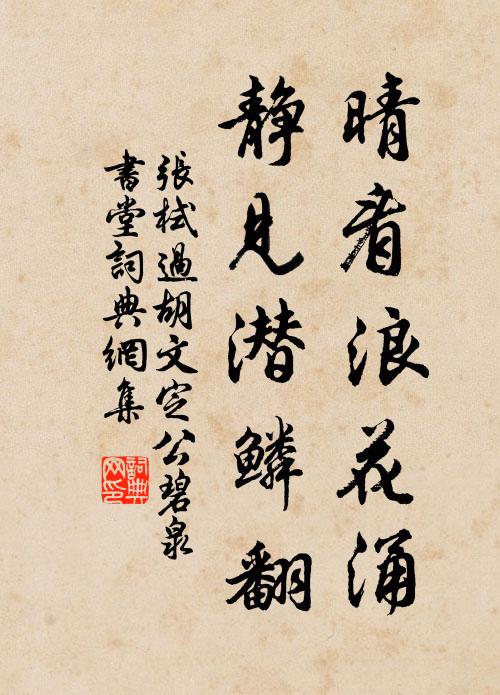 晴看浪花涌
静見潜鱗翻
張栻過胡文定公碧泉
書堂詞典網集
詞典
网印